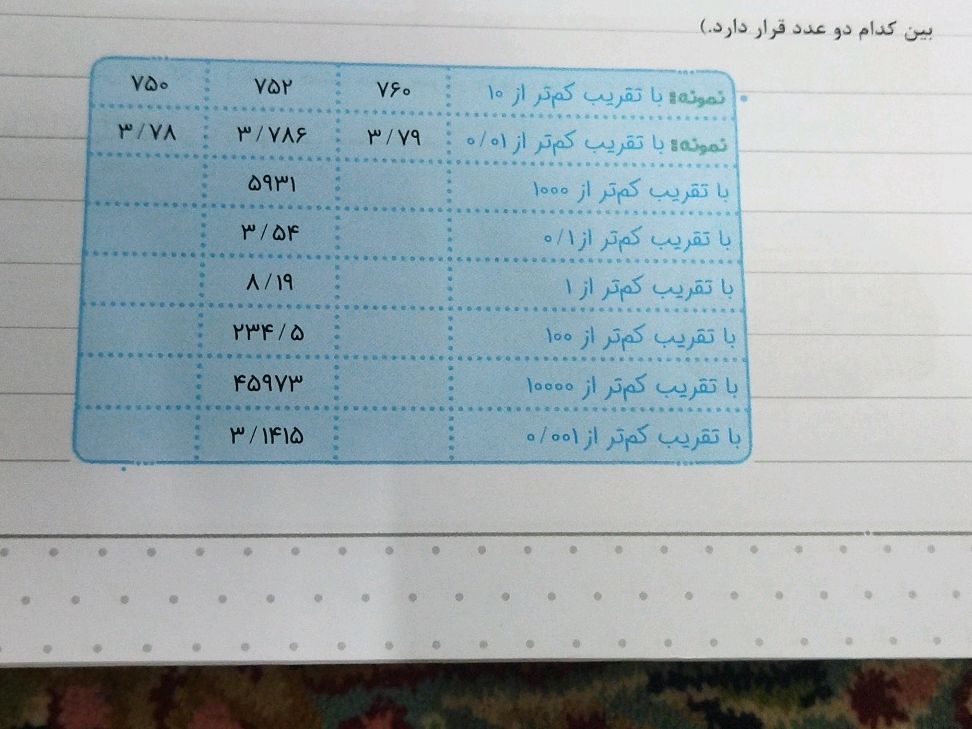 بین کدام دو عدد قرار دارد.)
نمونه: با تقریب کم‌تر از ۱۰ ۷۶۰ ۷۵۲ ۷۵۰
نمونه: با تقریب کم‌تر از ۰/۰۱ ۳/۷۹ ۳/۷۸۶ ۳/۷۸
با تقریب کم‌تر از ۱۰۰۰ ۵۹۳۱
با تقریب کم‌تر از ۰/۱ ۳/۵۴
با تقریب کم‌تر از ۱ ۸/۱۹
با تقریب کم‌تر از ۱۰۰ ۲۳۴/۵
با تقریب کم‌تر از ۱۰۰۰۰ ۴۵۹۷۳
با تقریب کم‌تر از ۰/۰۰۱ ۳/۱۴۱۵